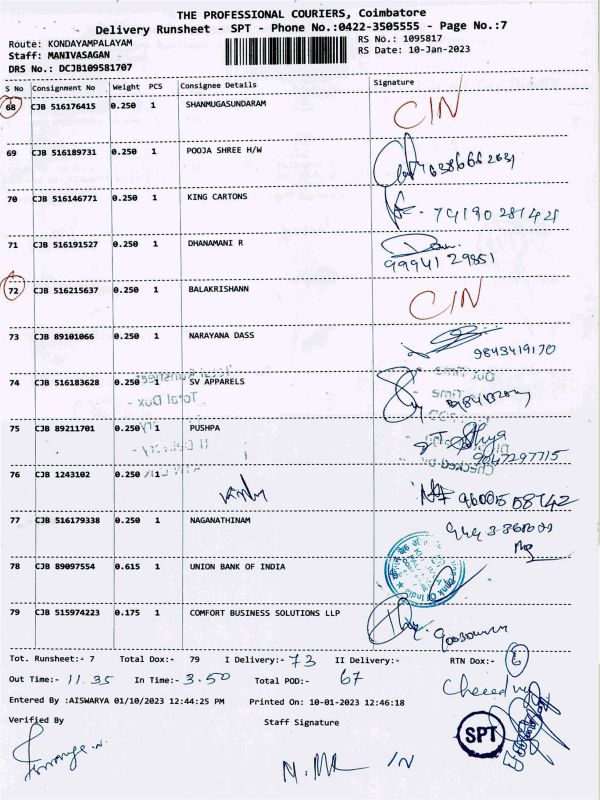 THE PROFESSIONAL COURIERS, Coimbatore
Delivery Runsheet - SPT - Phone No.:0422-3505555 - Page No.:7
Route: KONDAYAMPALAYAM
Staff: MANIVASAGAN
DRS No.: DCJB109581707
RS No.: 1095817
RS Date: 10-Jan-2023
S No Consignment No Weight PCS Consignee Details Signature
68 CJB 516176415 0.250 1 SHANMUGASUNDARAM CIN
69 CJB 516189731 0.250 1 POOJA SHREE H/W
70 CJB 516146771 0.250 1 KING CARTONS
71 CJB 516191527 0.250 1 DHANAMANI R
99941 29851
72 CJB 516215637 0.250 1 BALAKRISHANN CIN
73 CJB 89101066 0.250 1 NARAYANA DASS
9843419170
74 CJB 516183628 0.250 1 SV APPARELS
75 CJB 89211701 0.250 1 PUSHPA
9047297715
76 CJB 1243102 0.250 1
77 CJB 516179338 0.250 1 NAGANATHINAM
78 CJB 89097554 0.615 1 UNION BANK OF INDIA
79 CJB 515974223 0.175 1 COMFORT BUSINESS SOLUTIONS LLP
Tot. Runsheet:- 7 Total Dox:- 79 I Delivery:- 73 II Delivery:- RTN Dox:- 6
Out Time:- 11.35 In Time:- 3.50 Total POD:- 67
Entered By :AISWARYA 01/10/2023 12:44:25 PM Printed On: 10-01-2023 12:46:18
Verified By Staff Signature
SPT
IN